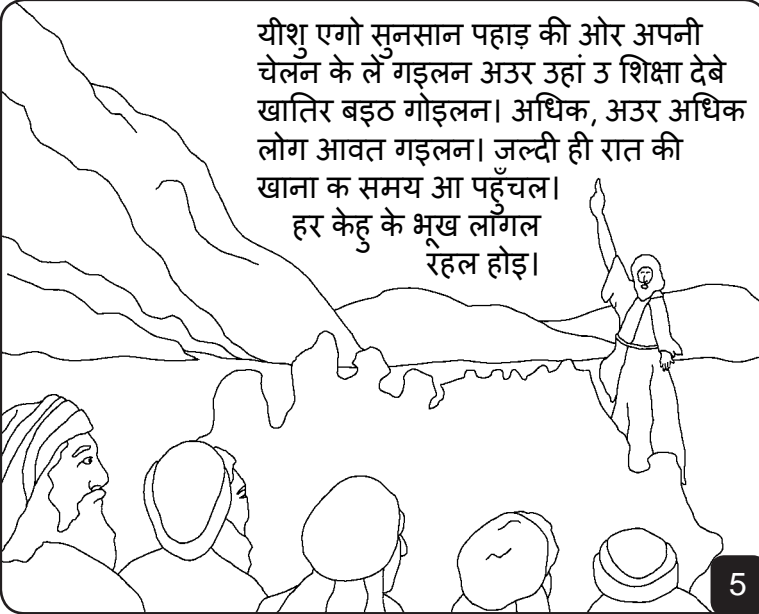 यीशु एगो सुनसान पहाड़ की ओर अपनी
चेलन के ले गइलन अउर उहां उ शिक्षा देबे
खातिर बइठ गोइलन। अधिक, अउर अधिक
लोग आवत गइलन। जल्दी ही रात की
खाना क समय आ पहुँचल।
हर केहु के भूख लागल
रहल होइ।
5